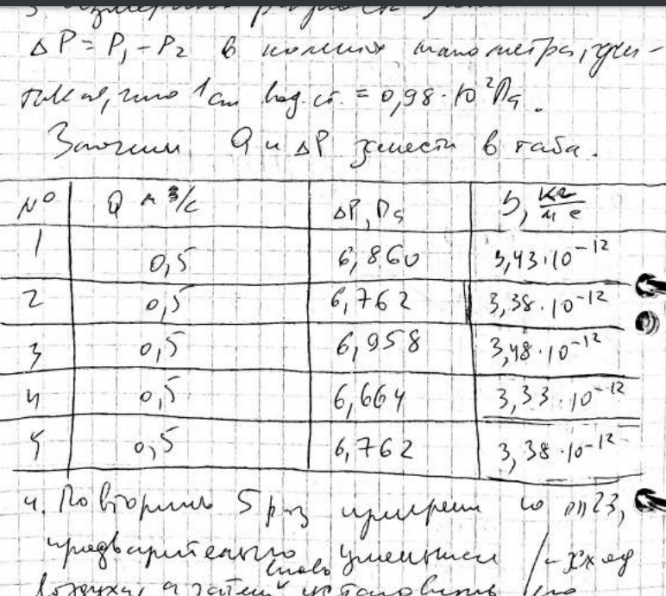 ΔP = P₁ - P₂ в коленах манометра, учи-
тывая, что 1 см вод. ст. = 0,98·10² Па.
Значения Q и ΔP занести в табл.
N° Q м³/с ΔP, Па η, кг/м с
1 0,5 6,860 3,43·10⁻¹²
2 0,5 6,762 3,38·10⁻¹²
3 0,5 6,958 3,48·10⁻¹²
4 0,5 6,664 3,33·10⁻¹²
5 0,5 6,762 3,38·10⁻¹²
4. Повторить 5 раз пп 23,
предварительно уменьшив
воздуха, а затем установить его